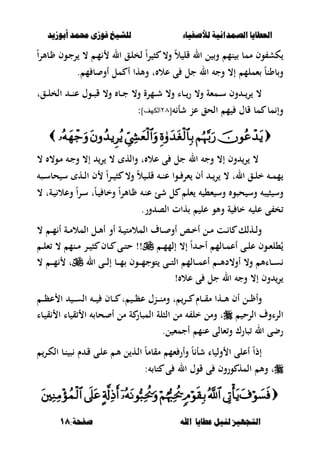 العطايا الصمدانية للأصفياء للشيخ فوزى محمد أبوزيد
يكشفون مما بينهم وبين الله قليلاً ولا كثيراً لخلق الله لأنهم لا يرجون ظاهراً
وباطناً بعملهم إلا وجه الله جل فى علاه، وهذا أكمل أوصافهم.
لا يريدون سمعة ولا رياء ولا شهرة ولا جاه ولا قبول عند الخلق،
وإنما كما قال فيهم الحق عز شأنه[٢٨الكهف]:
﴿ يَدْعُونَ رَبَّهُم بِالْغَدَوٰةِ وَالْعَشِيِّ يُرِيدُونَ وَجْهَهُ ﴾
لا يريدون إلا وجه الله جل فى علاه، والذى لا يريد إلا وجه مولاه لا
يهمه خلق الله، لا يريد أن يعرفوا عنه قليلاً ولا كثيراً لأن الذى سيحاسبه
وسيثيبه وسيحبوه وسيعطيه يعلم كل شئ عنه ظاهراً وخافياً، سراً وعلانية، لا
تخفى عليه خافية وهو عليم بذات الصدور.
ولذلك كانت من أخص أوصاف الملامتية أو أهل الملامة أنهم لا
يُطلعون على أعمالهم أحداً إلا إلههم !! حتى كان كثير منهم لا تعلم
نساءهم ولا أولادهم أعمالهم التى يتوجهون بها إلى الله ، لأنهم لا
يريدون إلا وجه الله جل فى علاه!
وأظن أن هذا مقام كريم، ومنزل عظيم، كان فيه السيد الأعظم
الرءوف الرحيم ﷺ، ومن خلفه من الثلة المباركة من أصحابه الأتقياء الأنقياء
رضى الله تبارك وتعالى عنهم أجمعين.
إذاً أعلى الأولياء شأناً وأرفعهم مقاماً الذين هم على قدم نبينا الكريم
ﷺ، وهم المذكورون فى قول الله فى كتابه:
﴿ فَسَوْفَ يَأْتِي اللَّهُ بِقَوْمٍ يُحِبُّهُمْ وَيُحِبُّونَهُ أَذِلَّةٍ عَلَى الْمُؤْمِنِينَ
التجهيز لنيل عطايا الله صفحة:١٨